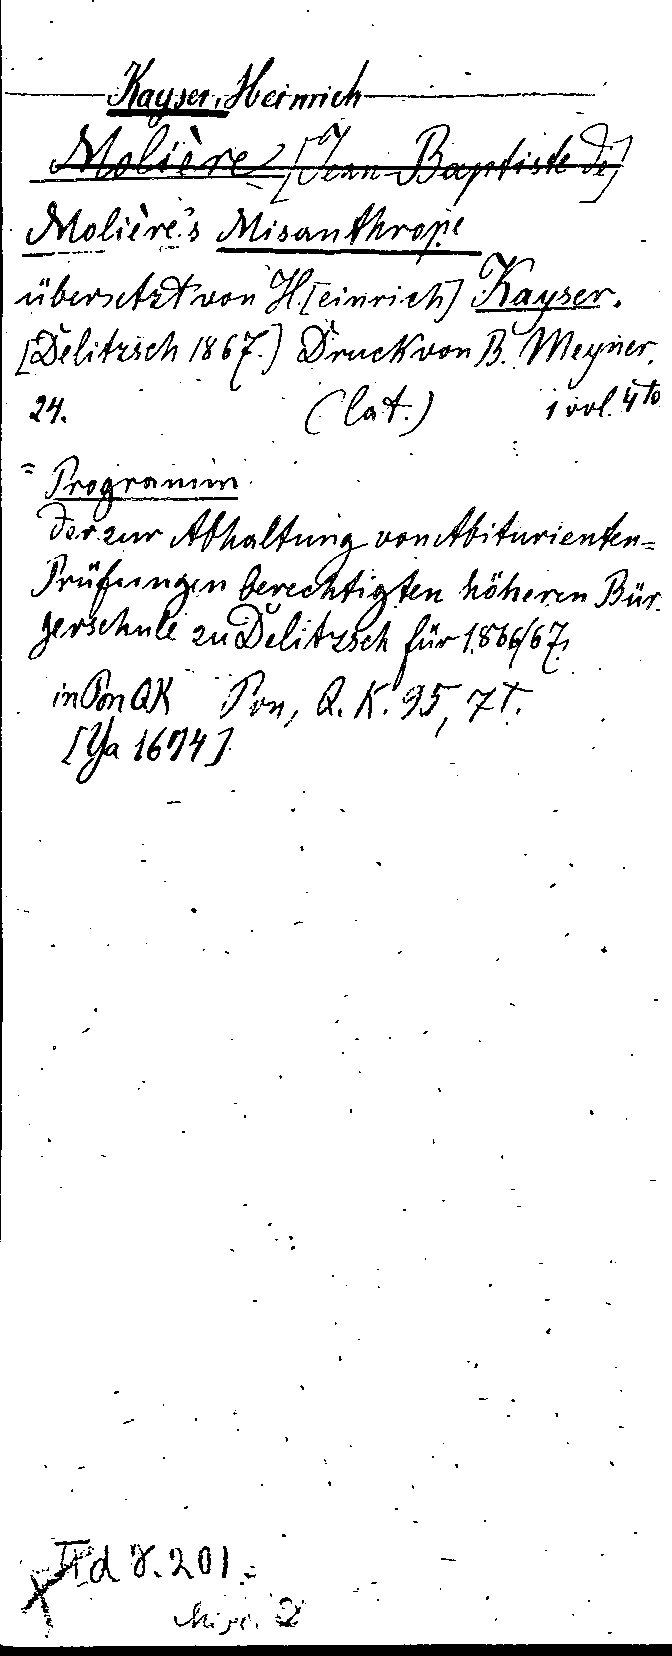 Kayser, Heinrich
Molière [Jean Baptiste de]
Molière's Misanthrope
übersetzt von H.[einrich] Kayser.
[Delitzsch 1867.] Druck von B. Meyner.
24. (lat.) 1 vol. 4to
= Programm
der zur Abhaltung von Abiturienten-
Prüfungen berechtigten höheren Bür-
gerschule zu Delitzsch für 1866/67.
in Pon QK Pon, Q. K. 95, 7T.
[Ya 1674]
IId 8. 201.
2